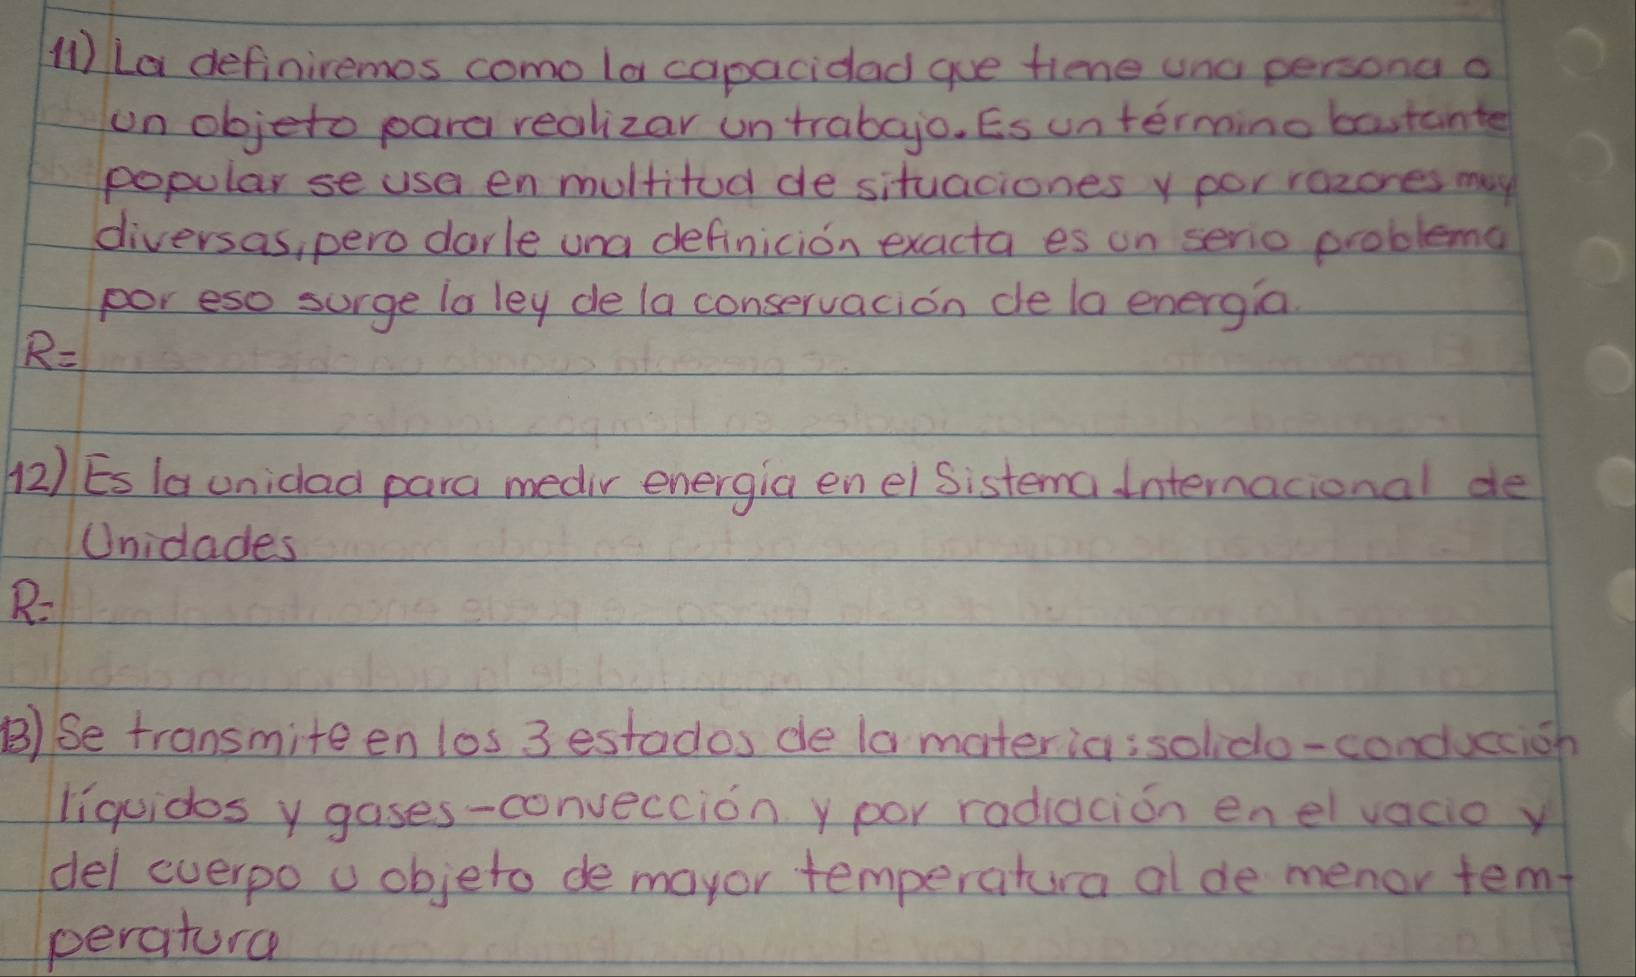 11) La definiremos como la capacidad que tiene una persona o
un objeto para realizar un trabajo. Es un término bastante
popular se usa en multitud de situaciones y por razones muy
diversas, pero darle una definición exacta es un serio problema
por eso surge la ley de la conservación de la energía.
R=
12) Es la unidad para medir energía en el Sistema Internacional de
Unidades
R=
13) Se transmite en los 3 estados de la materia: solido-conducción
líquidos y gases-convección y por radiación en el vacio y
del cuerpo u objeto de mayor temperatura al de menor tem-
peratura